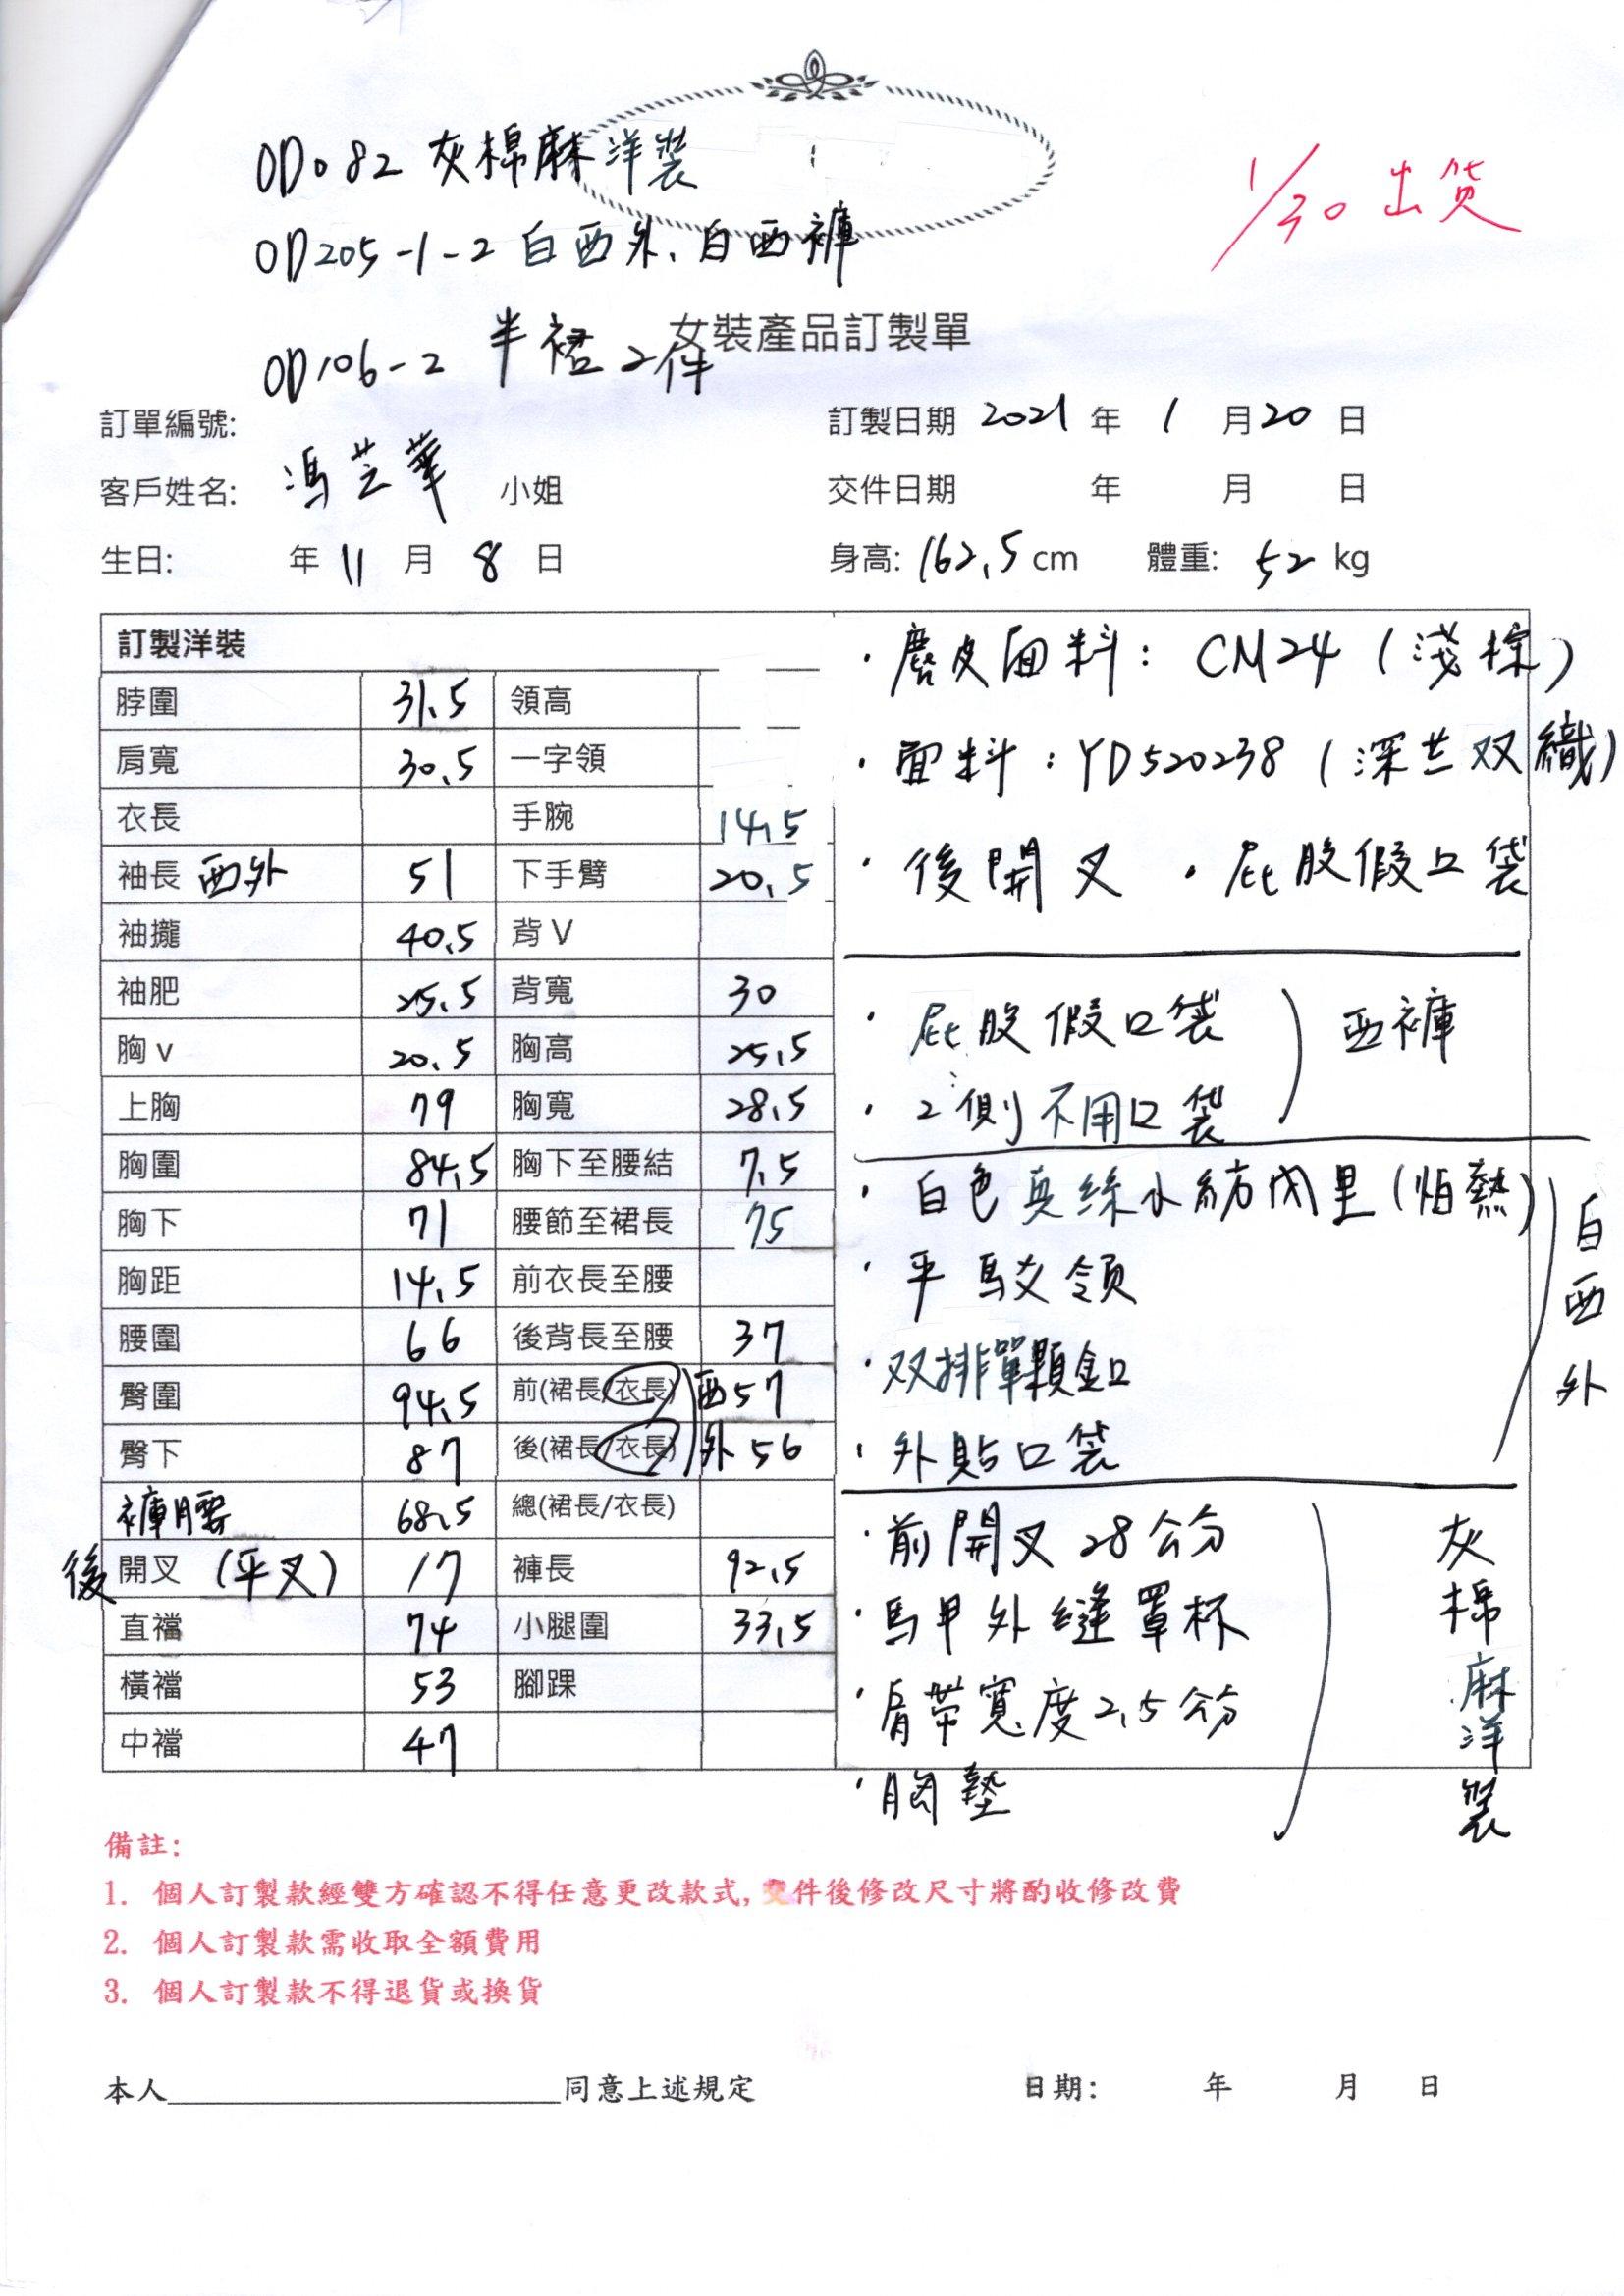 OD082 灰棉麻洋裝
1/30 出货
OD205-1-2 白西外、白西褲
女裝產品訂製單
OD106-2 半裙2件
訂單編號: 訂製日期 2021 年 1 月 20 日
客戶姓名: 馮芸華 小姐 交件日期 年 月 日
生日: 年 11 月 8 日 身高: 162.5 cm 體重: 52 kg
訂製洋裝
脖圍 31.5 領高
肩寬 30.5 一字領
衣長 手腕 14.5
袖長 西外 51 下手臂 20.5
袖攏 40.5 背V
袖肥 25.5 背寬 30
胸v 20.5 胸高 25.5
上胸 79 胸寬 28.5
胸圍 84.5 胸下至腰結 7.5
胸下 71 腰節至裙長 75
胸距 14.5 前衣長至腰
腰圍 66 後背長至腰 37
臀圍 94.5 前(裙長/衣長) 西 57
臀下 87 後(裙長/衣長) 外 56
褲腰 68.5 總(裙長/衣長)
後 開叉 (平叉) 17 褲長 92.5
直襠 74 小腿圍 33.5
橫襠 53 腳踝
中襠 47
·麂皮面料: CM24 (淺棕)
·面料: YD520238 (深兰双織)
·後開叉 ·屁股假口袋
·屁股假口袋
·2側不用口袋
西褲
·白色真絲水紡内里(怕熱)
·平駁領
·双排單顆釦
·外貼口袋
白西外
·前開叉 28公分
·馬甲外縫罩杯
·肩帶寬度2.5公分
·胸墊
灰棉麻洋裝
備註:
1. 個人訂製款經雙方確認不得任意更改款式, 交件後修改尺寸將酌收修改費
2. 個人訂製款需收取全額費用
3. 個人訂製款不得退貨或換貨
本人____________________同意上述規定 日期: 年 月 日